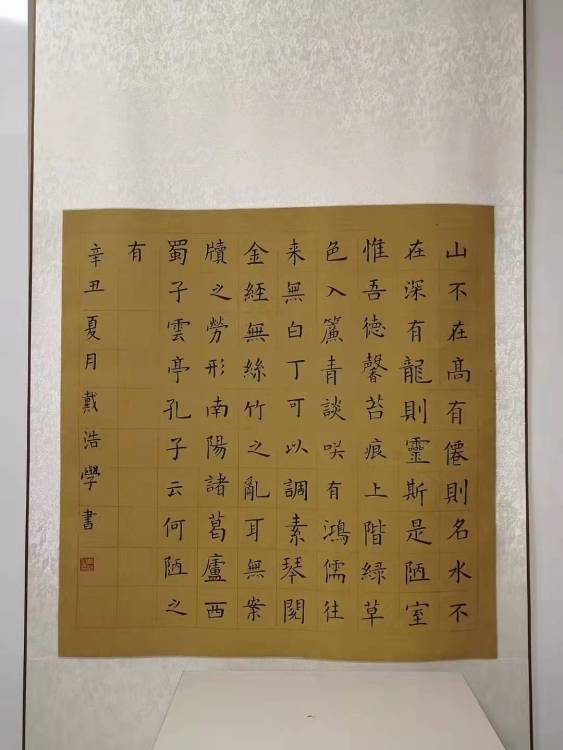 山不在髙有僊則名水不
在深有龍則靈斯是陋室
惟吾德馨苔痕上階綠草
色入簾青談咲有鴻儒往
来無白丁可以調素琴閱
金経無絲竹之亂耳無案
牘之勞形南陽諸葛廬西
蜀子雲亭孔子云何陋之
有
辛丑夏月戴浩學書